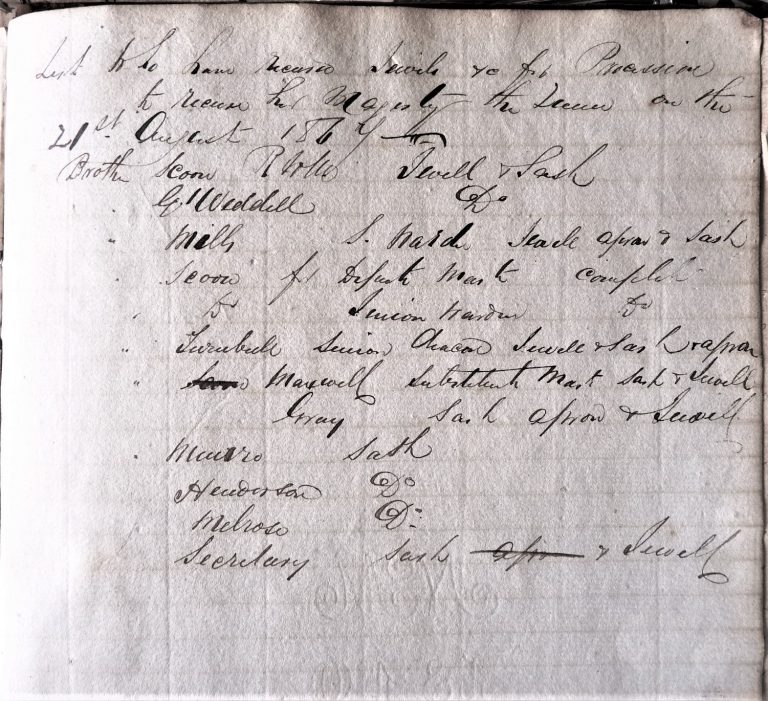 List who have received Jewels &c for Procession
to receive Her Magesty the Queen on the
21st August 1867
Brothr Scoon R W M Jewell & Sash
" G Weddell Do
" Mills S. Warde Jewell apron & Sash
" Scoon for Deput Mast complet
" Do Senior Warden Do
" Turnbull Senior Deacon Jewell & Sash & apron
" Scoon Maxwell Substitute Mast Sash & Jewell
Gray Sash apron & Jewell
" Munro Sash
Henderson Do
Melrose Do
Secretary Sash apron & Jewell